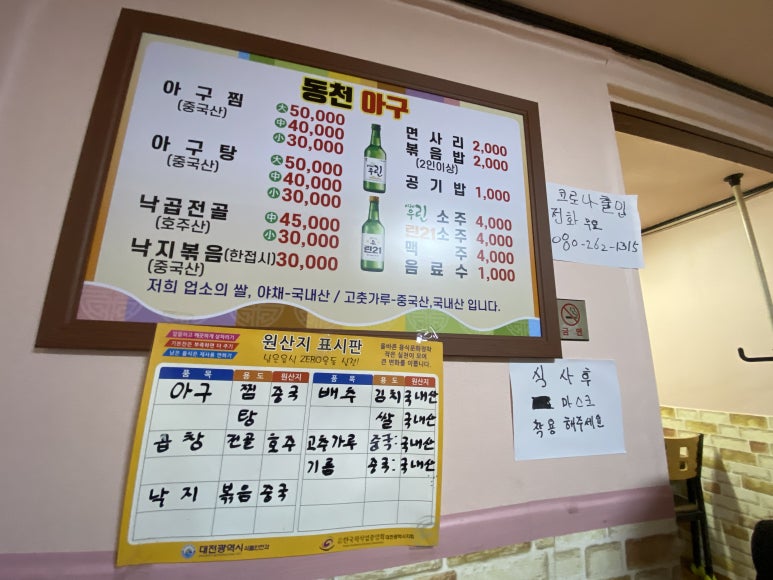 동천 아구
아구찜 大 50,000
(중국산) 中 40,000
小 30,000
아구탕 大 50,000
(중국산) 中 40,000
小 30,000
낙곱전골 中 45,000
(호주산) 小 30,000
낙지볶음(한접시) 30,000
(중국산)
면사리 2,000
볶음밥 2,000
(2인이상)
공기밥 1,000
우린 소주 4,000
린21소주 4,000
맥주 4,000
음료수 1,000
우린
린21
저희 업소의 쌀, 야채-국내산 / 고춧가루-중국산,국내산 입니다.
코로나출입
전화
080-262-1315
금연
원산지 표시판
식문음식 ZERO운동 실천!
품목 용도 원산지 품목 용도 원산지
아구 찜 중국 배추 김치 국내산
탕 쌀 국내산
곱창 전골 호주 고추가루 중국: 국내산
기름 중국: 국내산
낙지 볶음 중국
대전광역시 식품안전과
한국외식업중앙회 대전광역시지회
식사후
마스크
착용 해주세요